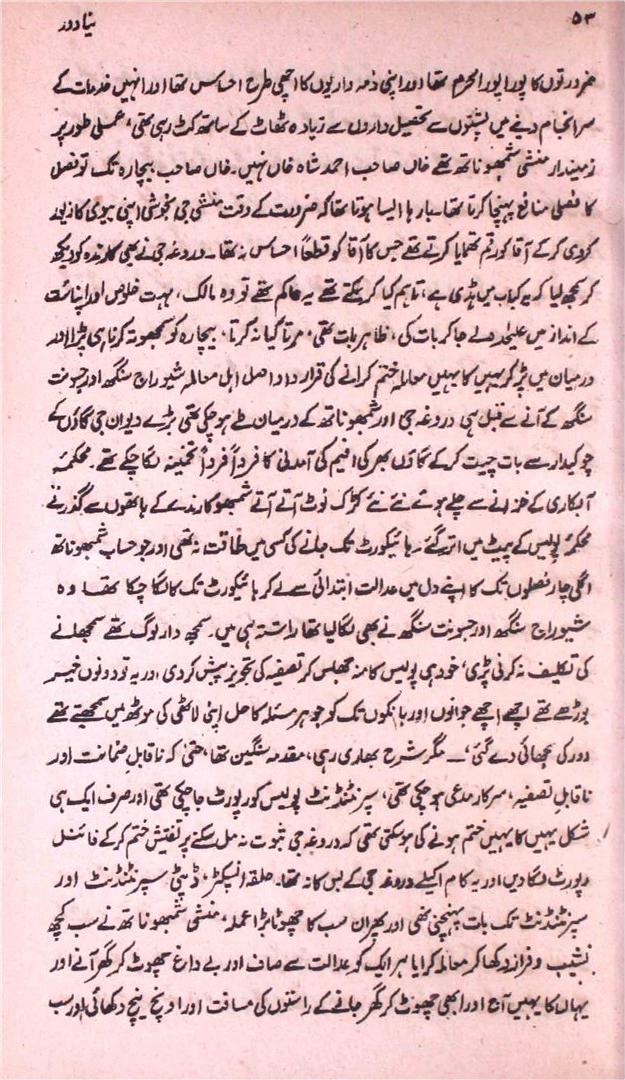 ۵۳
نیا دور
ضرورتوں کا پورا پورا محرم تھا اور اپنی ذمہ داریوں کا اچھی طرح احساس تھا اور انہیں خدمات کے
سرانجام دینے میں پشتوں سے تحصیل داروں سے زیادہ ٹھاٹ کے ساتھ کٹ رہی تھی، عملی طور پر
زمیندار منشی شمبھو ناتھ تھے خاں صاحب احمد شاہ خاں نہیں۔ خاں صاحب بیچارہ تک تو فصل
کا فصلی منافع پہنچا کرتا تھا۔ بارہا ایسا ہوتا تھا کہ ضرورت کے وقت منشی جی بخوشی اپنی بیوی کا زیور
گروی کر کے آقا کو رقم تھمایا کرتے تھے جس کا آقا کو قطعاً احساس نہ تھا۔ دروغہ جی نے بھی کارندہ کو دیکھ
کر سمجھ لیا کہ یہ کباب میں ہڈی ہے، تاہم کیا کر سکتے تھے یہ حاکم تھے تو وہ مالک، بہت خلوص اور اپنائت
کے انداز میں علیٰحدہ لے جا کر بات کی، ظاہر بات تھی، مرتا کیا نہ کرتا، بیچارہ کو سمجھوتہ کرنا ہی پڑا اور
درمیان میں پڑ کر یہیں کا یہیں معاملہ ختم کرانے کی قرارداد اصل اہل معاملہ شیوراج سنگھ اور جسونت
سنگھ کے آنے سے قبل ہی دروغہ جی اور شمبھو ناتھ کے درمیان طے ہو چکی تھی بڑے دیوان جی گاؤں کے
چوکیدار سے بات چیت کر کے گاؤں بھر کی افیم کی آمدنی کا فرداً فرداً تخمینہ لگا چکے تھے۔ محکمۂ
آبکاری کے خزانے سے چلے ہوئے نئے نئے کڑک نوٹ آتے آتے شمبھو کارندے کے ہاتھوں سے گذرتے
محکمہ پولیس کے پیٹ میں اتر گئے۔ ہائیکورٹ تک جانے کی کسی میں طاقت نہ تھی اور جو حساب شمبھو ناتھ
اگلی چار فصلوں تک کا اپنے دل میں عدالت ابتدائی سے لے کر ہائیکورٹ تک کا لگا چکا تھا وہ
شیوراج سنگھ اور جسونت سنگھ نے بھی لگا لیا تھا راستہ ہی میں۔ سمجھ دار لوگ تھے سمجھانے
کی تکلیف نہ کرنی پڑی، خود ہی پولیس کا منہ جھلس کر تصفیہ کی تجویز پیش کر دی اور یہ تو دونوں خیر
بوڑھے تھے اچھے اچھے جوانوں اور بانکوں تک کو جو ہر مسئلہ کا حل اپنی لاٹھی کی موٹھ میں سمجھتے تھے
دور کی سجھائی دے گئی، — مگر شرح بھاری رہی، مقدمہ سنگین تھا، حتیٰ کہ ناقابل ضمانت اور
ناقابل تصفیہ، سرکار مدعی ہو چکی تھی، سپرنٹنڈنٹ پولیس کو رپورٹ جا چکی تھی اور صرف ایک ہی
شکل یہیں کا یہیں ختم ہونے کی ہو سکتی تھی کہ دروغہ جی ثبوت نہ مل سکنے پر تفتیش ختم کر کے فائنل
رپورٹ لگا دیں اور یہ کام اکیلے دروغہ جی کے بس کا نہ تھا۔ حلقہ انسپکٹر، ڈپٹی سپرنٹنڈنٹ اور
سپرنٹنڈنٹ تک بات پہنچنی تھی اور پھر ان سب کا چھوٹا بڑا عملہ، منشی شمبھو ناتھ نے سب کچھ
نشیب و فراز دکھا کر معاملہ کرایا ہر ایک کو عدالت سے صاف اور بے داغ چھوٹ کر گھر آنے اور
یہاں کا یہیں آج اور ابھی چھوٹ کر گھر جانے کے راستوں کی مسافت اور اونچ نیچ دکھائی اور سب